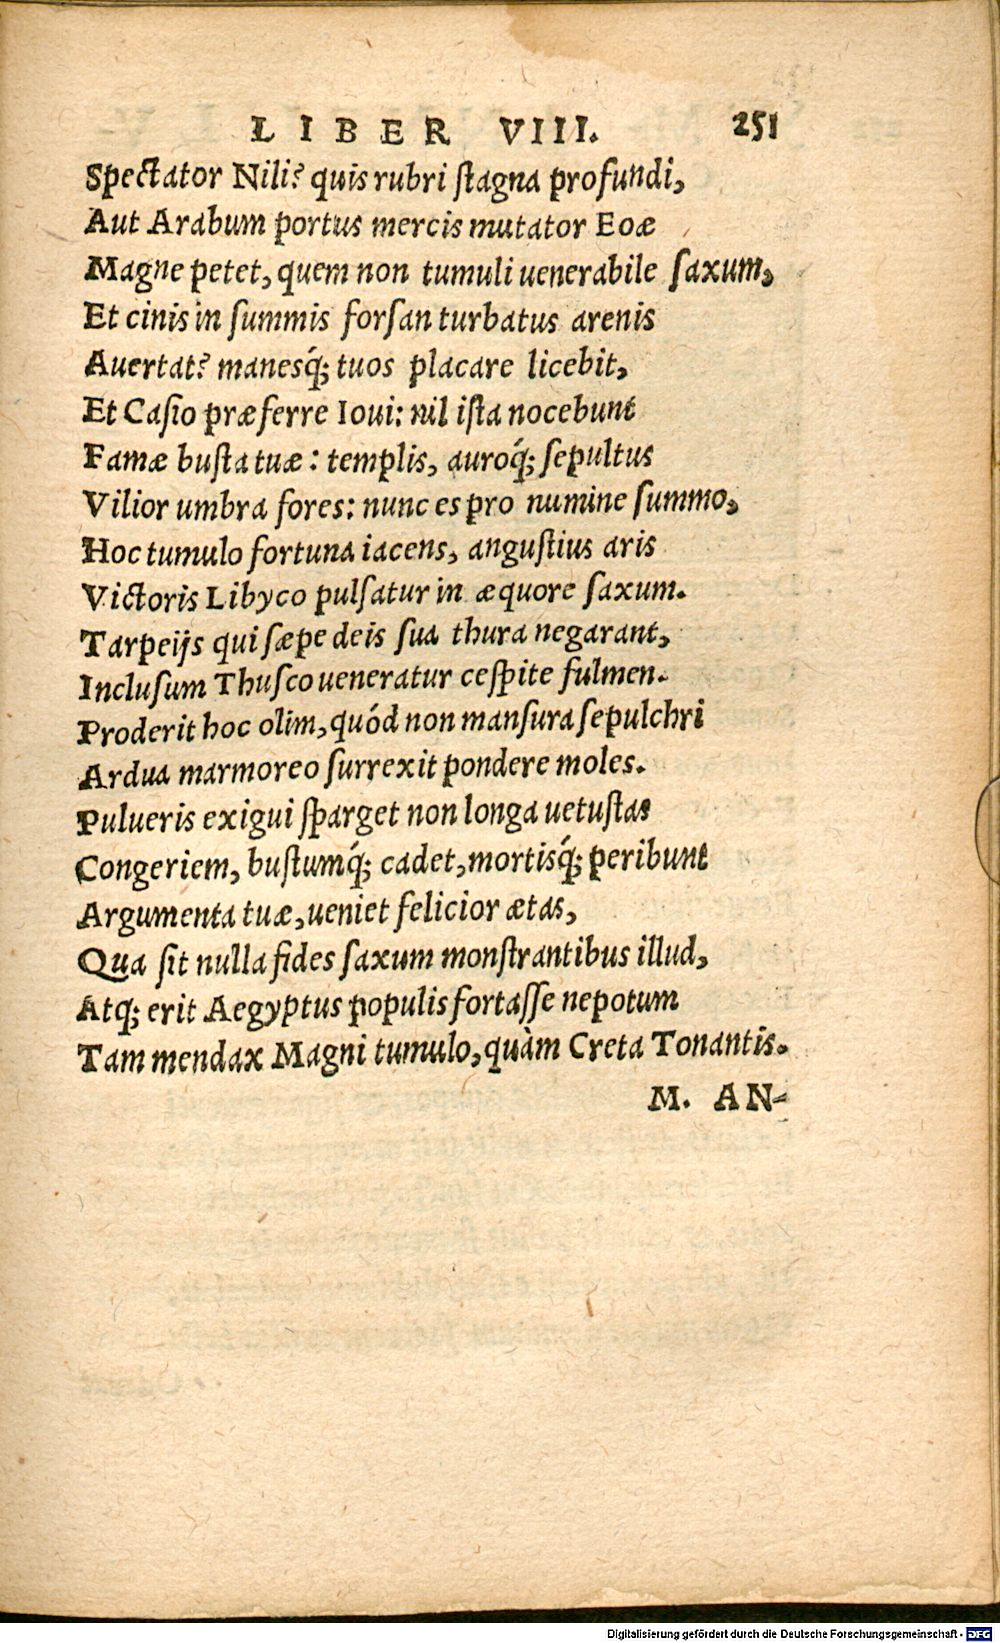 LIBER VIII. 251
Spectator Nili? quis rubri ſtagna profundi,
Aut Arabum portus mercis mutator Eoæ
Magne petet, quem non tumuli uenerabile ſaxum,
Et cinis in ſummis forſan turbatus arenis
Auertat? manesq́; tuos placare licebit,
Et Caſio præferre Ioui: nil iſta nocebunt
Famæ buſta tuæ: templis, auroq́; ſepultus
Vilior umbra fores: nunc es pro numine ſummo,
Hoc tumulo fortuna iacens, anguſtius aris
Victoris Libyco pulſatur in æquore ſaxum.
Tarpeijs qui ſæpe deis ſua thura negarant,
Incluſum Thuſco ueneratur ceſpite fulmen.
Proderit hoc olim, quód non manſura ſepulchri
Ardua marmoreo ſurrexit pondere moles.
Pulueris exigui ſparget non longa uetuſtas
Congeriem, buſtumq́; cadet, mortisq́; peribunt
Argumenta tuæ, ueniet felicior ætas,
Qua ſit nulla fides ſaxum monſtrantibus illud,
Atq; erit Aegyptus populis fortaſſe nepotum
Tam mendax Magni tumulo, quàm Creta Tonantis.
M. AN-
Digitalisierung gefördert durch die Deutsche Forschungsgemeinschaft - DFG